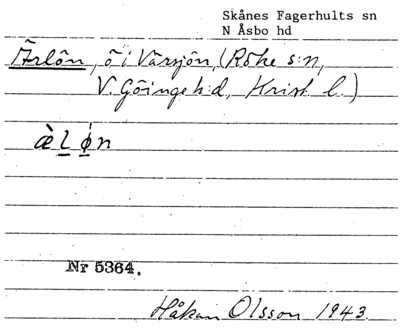 Skånes Fagerhults sn
N Åsbo hd
Ärlön, ö i Värsjön, (Röke s:n,
V. Göinge h:d, Krist. l.)
æ̀l ǿn
Nr 5364.
Håkan Olsson 1943.